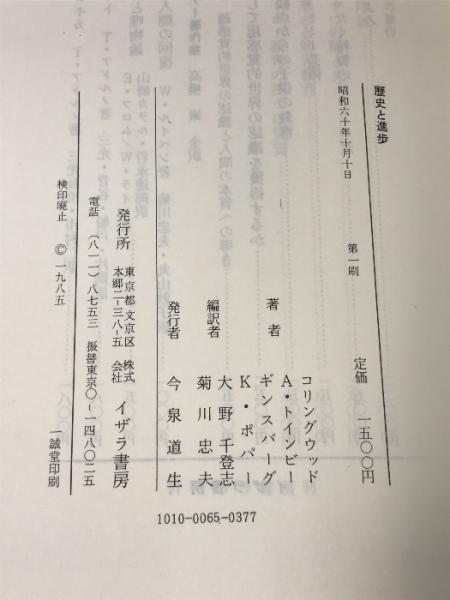 歴史と進歩
昭和六十年十月十日 第一刷 定価 一五〇〇円
著者 コリングウッド
A・トインビー
ギンスバーグ
K・ポパー
編訳者 大野千登志
菊川忠夫
発行者 今泉道生
発行所 株式会社 イザラ書房
東京都文京区本郷二-三八-五
電話 (八一一) 八七五三 振替東京〇-一四八〇二五
検印廃止 © 一九八五 一誠堂印刷
1010-0065-0377